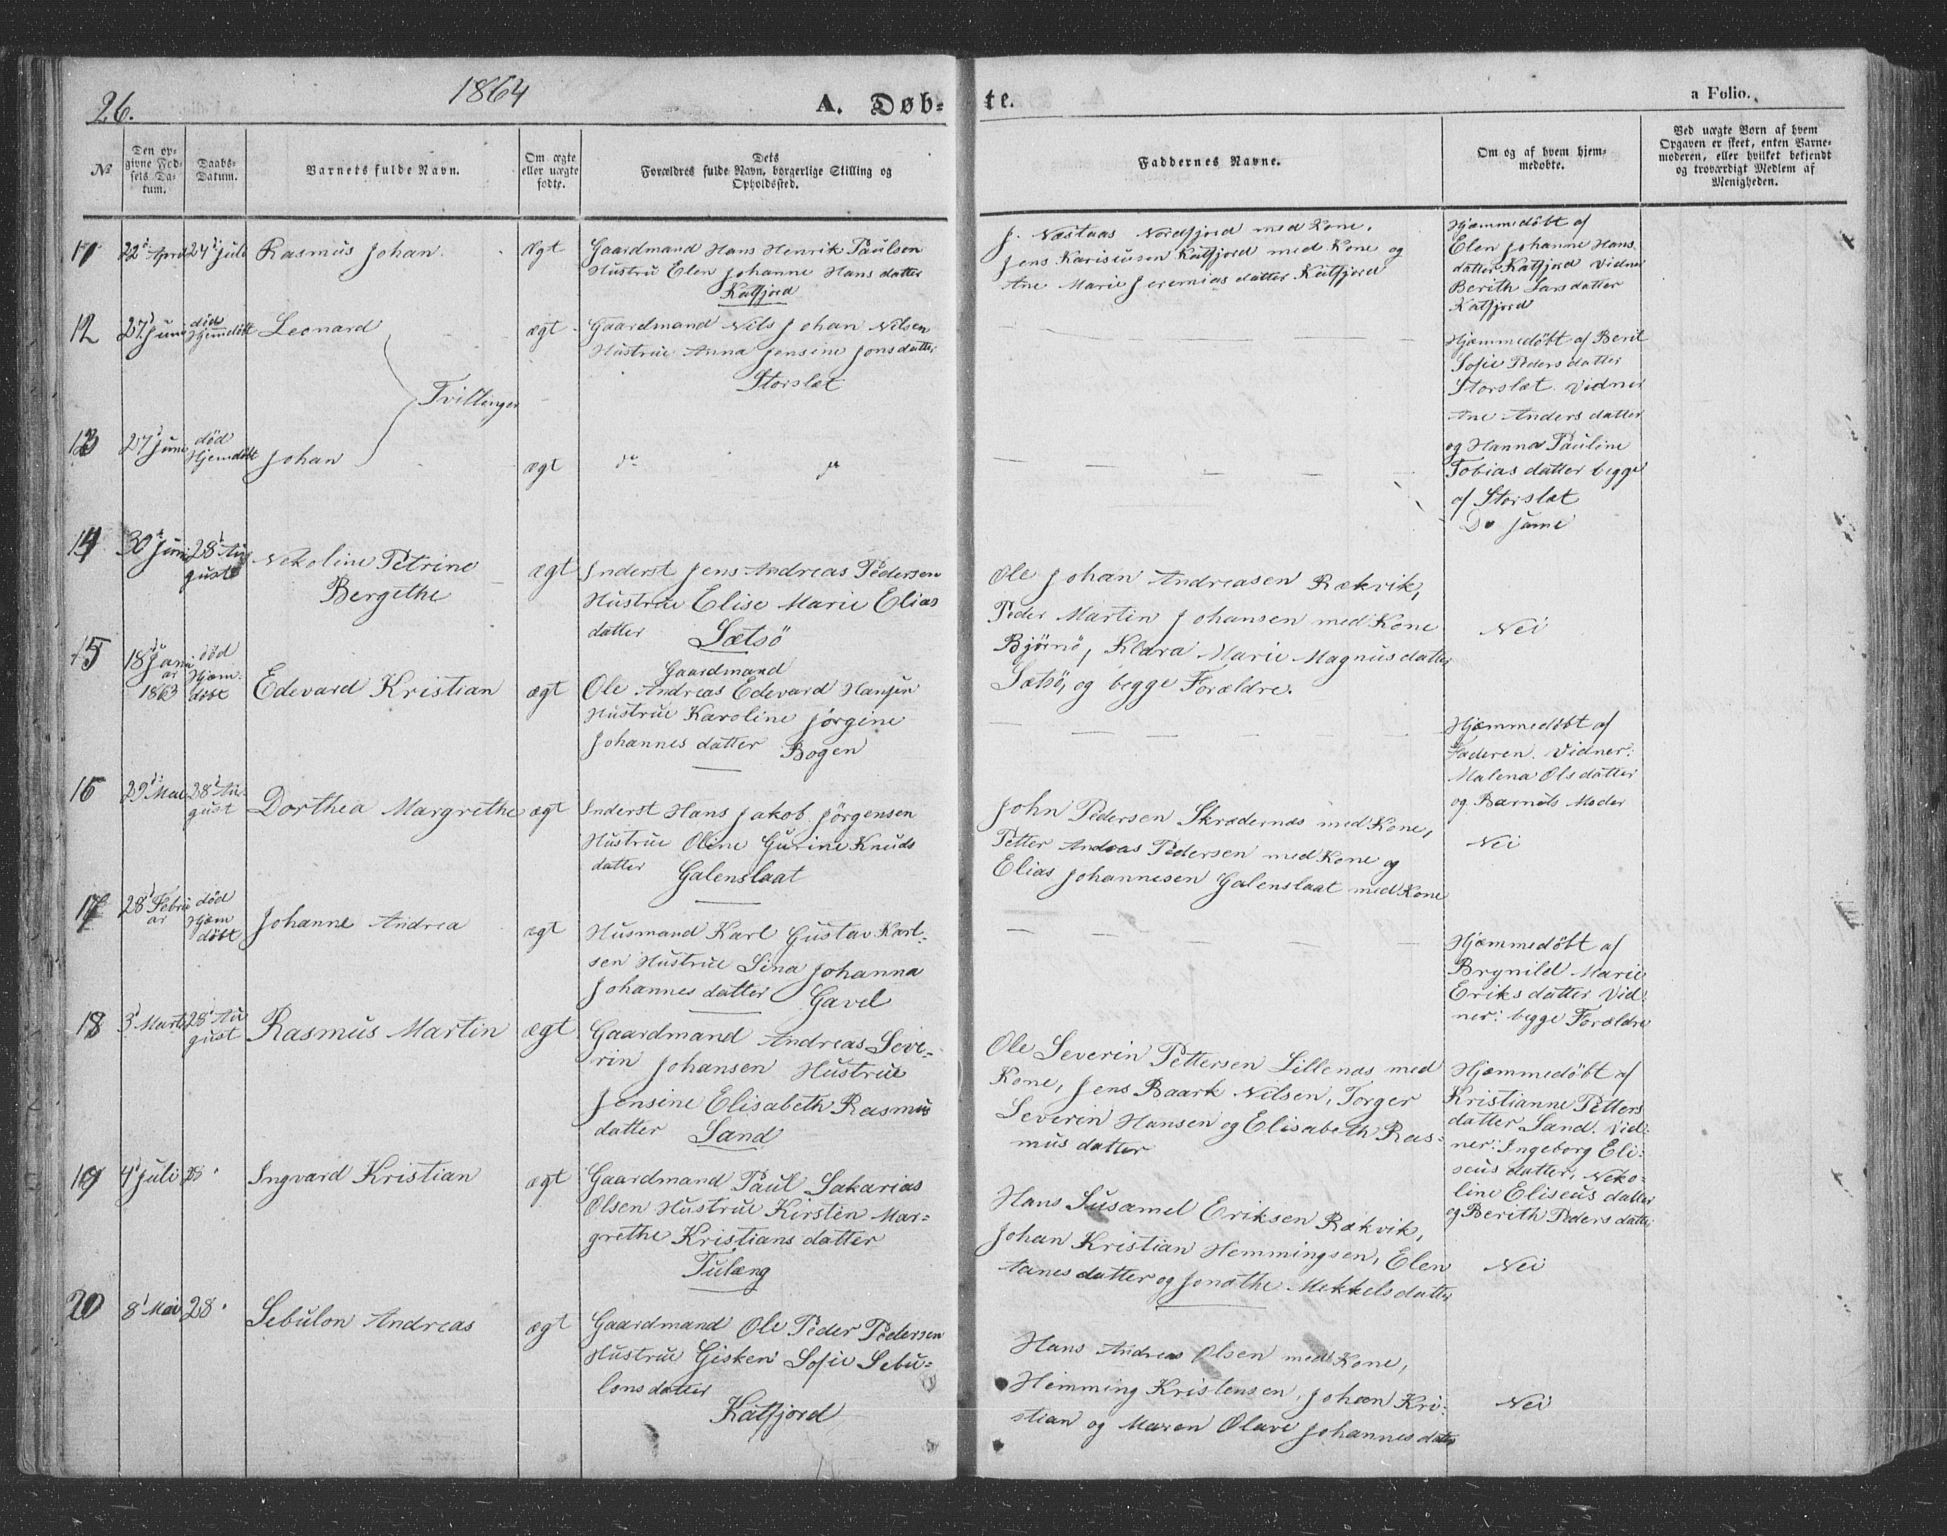 26.
1864
A. Døb-
te.
a Folio.
№
Den op-
givne Fød-
sels Da-
tum.
Daabs-
Datum.
Barnets fulde Navn.
Om ægte
eller uægte
fødte.
Dets
Forældres fulde Navn, borgerlige Stilling og
Opholdssted.
Faddernes Navne.
Om og af hvem hjem-
medøbte.
Ved uægte Børn af hvem
Opgaven er skeet, enten Barne-
moderen, eller hvilket bekjendt
og troværdigt Medlem af
Menigheden.
11
22de April
24de Juli
Rasmus Johan
Ægt
Gaardmand Hans Henrik Paulsen
Hustru Elen Johanne Hans datter
Kalfjord
J. Næstaas Nordfjord med Kone,
Jens Kariseusen Kalfjord med Kone og
Ane Marie Jeremias datter Kalfjord
Hjæmmedöbt af
Elen Johanne Hans
datter Kalfjord Vidner
Berith Lars datter
Kalfjord
12
27de Juni
död
Hjemdöbt
Leonard
Tvillinger
ægt
Gaardmand Nils Johan Nilsen
Hustrue Anna Jensine Jonsdatter
Storslet
Hjæmmedöbt af Berit
Sofie Peders datter
Storslæt. Vidner
Ane Anders datter
og Hanna Pauline
Tobias datter begge
af Storslæt
13
27de Juni
död
Hjemdöbt
Johan
ægt
do
do
Do same
14
30te Juni
28de Au
guste
Nekoline Petrine
Bergethe
ægt
Inderst Jens Andreas Pedersen
Hustrue Elise Marie Elias
datter Sætsö
Ole Johan Andreasen Rækvik,
Peder Martin Johansen med Kone
Bjørnö, Klara Marie Magnus datter
Sætsö, og begge Forældre.
Nei
15
18de Janu
ar
1863
död
Hjæm
döbt
Edevard Kristian
ægt
Gaardmand
Ole Andreas Edevard Hansen
Hustrue Karoline Jörgine
Johannes datter Bogen
Hjæmmedöbt af
Faderen. Vidner:
Malena Olsdatter
og Barnets Moder
16
29de Mai
28de Au-
gust
Dorthea Margrethe
ægt
Inderst Hans Jakob Jörgensen
Hustrue Oline Gurine Knuds
datter Galenslaat
John Pedersen Skrædernæs med Kone,
Petter Andreas Pedersen med Kone og
Elias Johannesen Galenslaat med Kone
Nei
17
28de Febru
ar
död
Hjæm
döbt
Johanne Andrea
ægt
Husmand Karl Gustav Karl-
sen Hustrue Lina Johanna
Johannes datter Gavel
Hjæmmedöbt af
Brynild Marie
Eriks datter Vid-
ner: begge Forældre
18
3de Marts
28de Au
gust
Rasmus Martin
ægt
Gaardmand Andreas Seve-
rin Johansen Hustrue
Jensine Elisabeth Rasmus
datter Sand
Ole Severin Pettersen Lillenæs med
Kone, Jens Baark Nilsen, Torger
Severin Hansen og Elisabeth Ras-
mus datter
Hjæmmedöbt af
Kristianne Petters
datter Sand. Vid-
ner: Ingeborg Eli-
seus datter, Neko-
line Eliseus datter
og Berith Peders datter
19
4de Juli
28
Ingvard Kristian
ægt
Gaardmand Paul Sakarias
Olsen Hustrue Kirsten Mar-
grethe Kristians datter
Tulæng
Hans Susamel Eriksen Rækvik,
Johan Kristian Hemmingsen, Elen
Tanes datter og Jonathe Mekkels datter
Nei
20
8de Mai
28
Sebulon Andreas
ægt
Gaardmand Ole Peder Pedersen
Hustrue Gisken Sofie Sebu-
lons datter
Kalfjord
Hans Andreas Olsen med Kone,
Hemming Kristensen, Johan Kri-
stian og Maren Olave Johannes datter
Nei